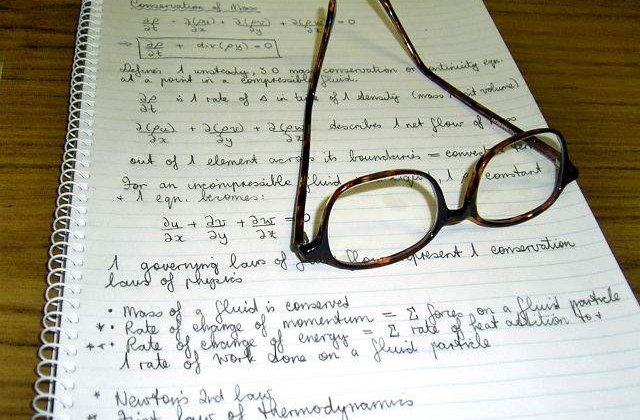 Conservation of Mass
∂ρ/∂t + ∂(ρu)/∂x + ∂(ρv)/∂y + ∂(ρw)/∂z = 0
⇒ ∂ρ/∂t + div(ρu) = 0
Defines 1 unsteady, 3D mass conservation or continuity eqn.
at a point in a compressible fluid.
∂ρ/∂t is 1 rate of Δ in time of 1 density (mass unit volume)
∂(ρu)/∂x + ∂(ρv)/∂y + ∂(ρw) describes 1 net flow of mass
out of 1 element across its boundaries =
For an incompressible fluid 1 ρ constant
+ 1 eqn. becomes:
∂u/∂x + ∂v/∂y + ∂w/∂z = 0
1 governing laws of flow represent 1 conservation
laws of physics
• Mass of a fluid is conserved
*• Rate of change of momentum = Σ forces on a fluid particle
**• Rate of change of energy = Σ rate of heat addition to +
1 rate of work done on a fluid particle
* Newton's 2nd law
First law of thermodynamics